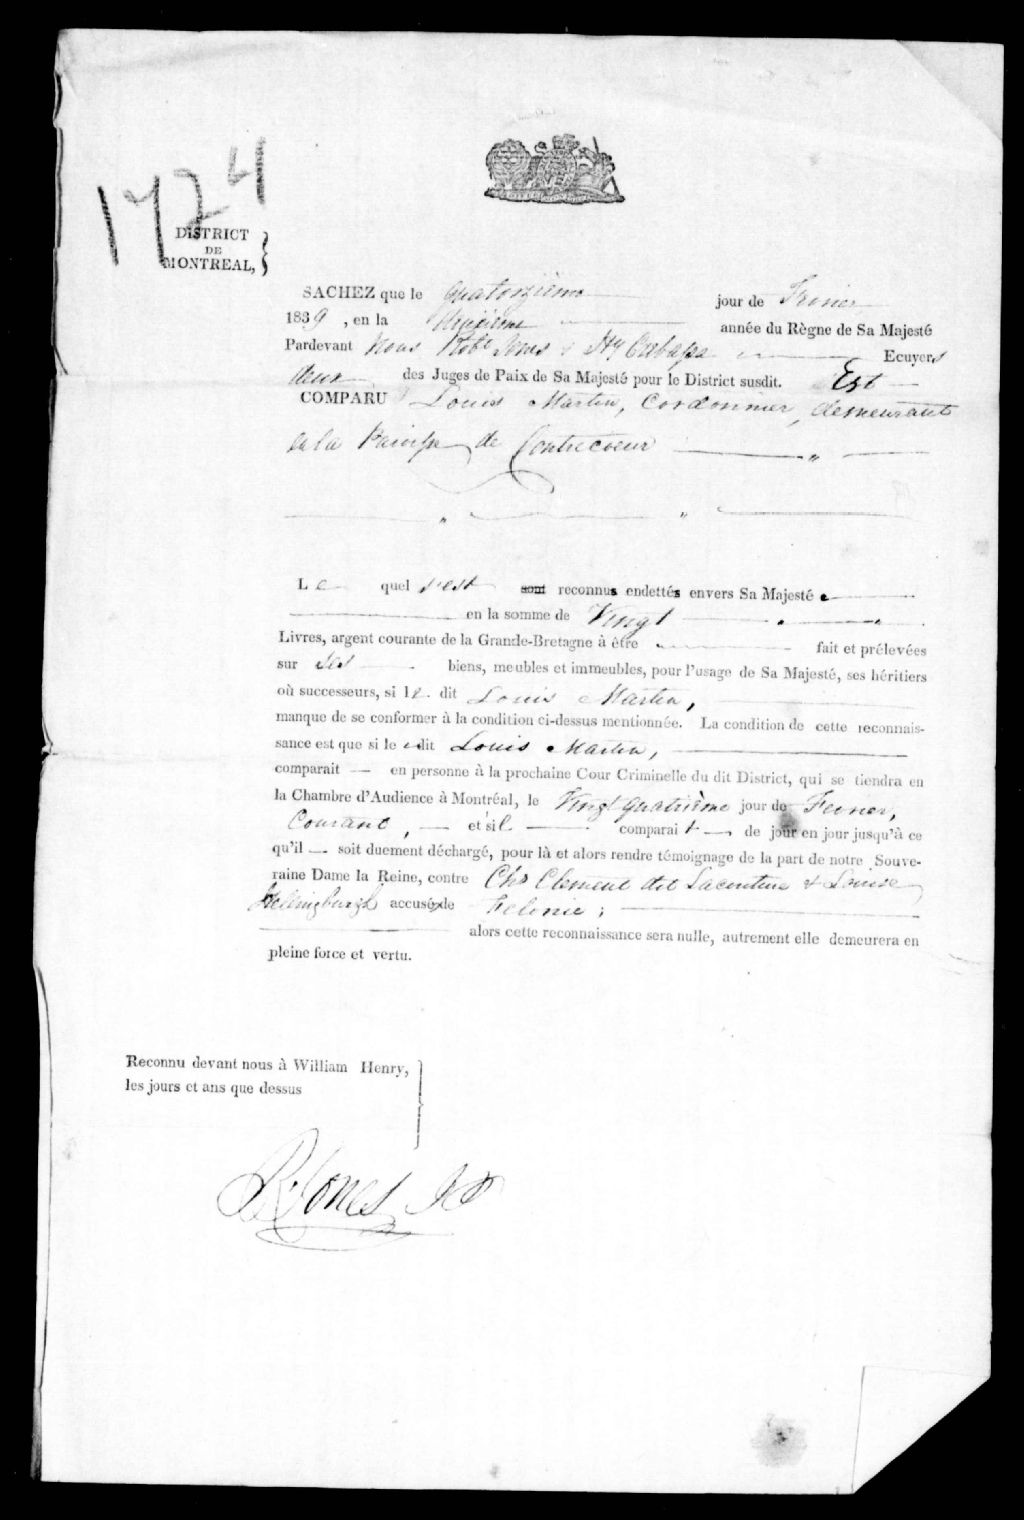 1724
DISTRICT
DE
MONTREAL, }
SACHEZ que le Quatorzieme jour de Fevrier
1839, en la deuxieme année du Règne de Sa Majesté
Pardevant Nous Robt Jones & Hy Crebassa Ecuyers
deux des Juges de Paix de Sa Majesté pour le District susdit. Est
COMPARU Louis Martin, Cordonnier, demeurant
en la Paroisse de Contrecoeur
Le quel s'est sont reconnus endettés envers Sa Majesté
en la somme de Vingt
Livres, argent courante de la Grande-Bretagne à être fait et prélevées
sur ses biens, meubles et immeubles, pour l'usage de Sa Majesté, ses héritiers
où successeurs, si le dit Louis Martin,
manque de se conformer à la condition ci-dessus mentionnée. La condition de cette reconnais-
sance est que si le dit Louis Martin,
comparait — en personne à la prochaine Cour Criminelle du dit District, qui se tiendra en
la Chambre d'Audience à Montréal, le Vingt quatrième jour de Fevrier,
Courant, — et s'il — comparait — de jour en jour jusqu'à ce
qu'il — soit duement déchargé, pour là et alors rendre témoignage de la part de notre Souve-
raine Dame la Reine, contre Chs Clement dit Lacouture & Louise
accusé de Felonie ;
alors cette reconnaissance sera nulle, autrement elle demeurera en
pleine force et vertu.
Reconnu devant nous à William Henry, }
les jours et ans que dessus
R. Jones JP